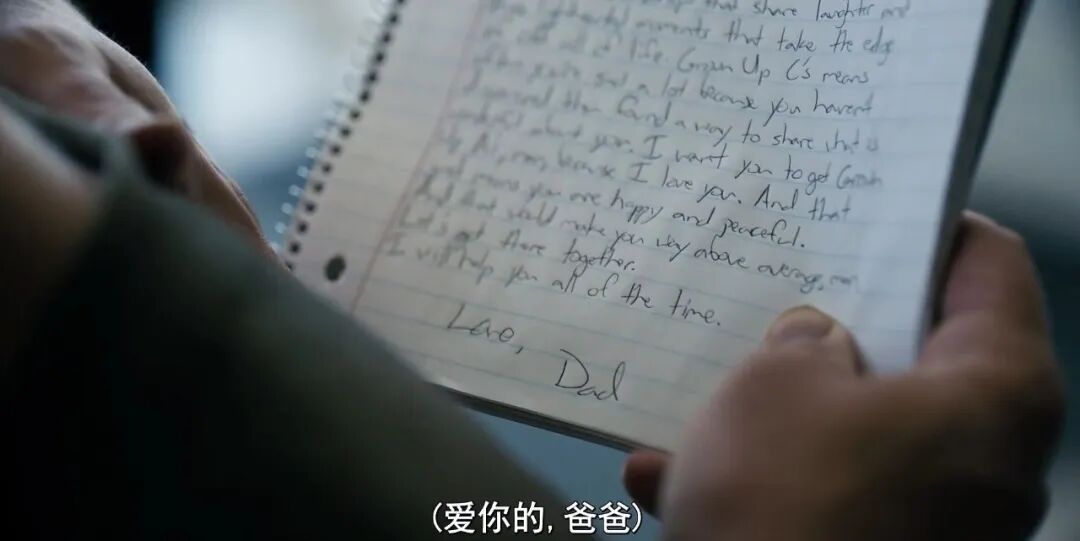 that share laughter and
moments that take the edge
off all of life. Grown Up C's means
a lot because you haven't
a way to share what is
about you. I want you to get Grown
Up A's, man, because I love you. And that
means you are happy and peaceful.
And that would make you way above average, man
Let's get there together.
I will help you all of the time.
Love,
Dad
(爱你的,爸爸)